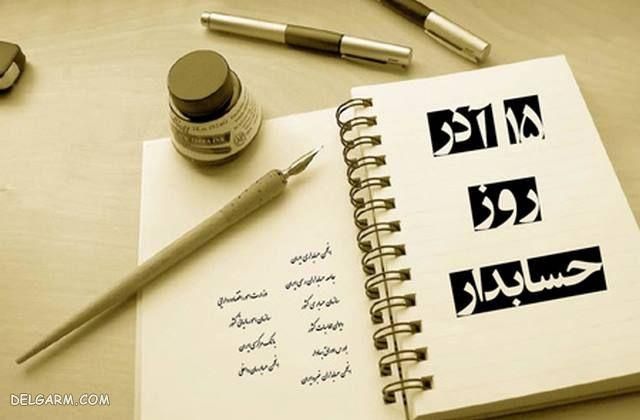 ۱۵ آذر
روز
حسابدار
انجمن حسابداری ایران
جامعه حسابداران رسمی ایران
سازمان حسابرسی کشور
دیوان محاسبات کشور
بورس اوراق بهادار
انجمن حسابداران خبره ایران
وزارت امور اقتصاد و دارایی
سازمان امور مالیاتی کشور
بانک مرکزی ایران
انجمن حسابرسان داخلی
DELGARM.COM